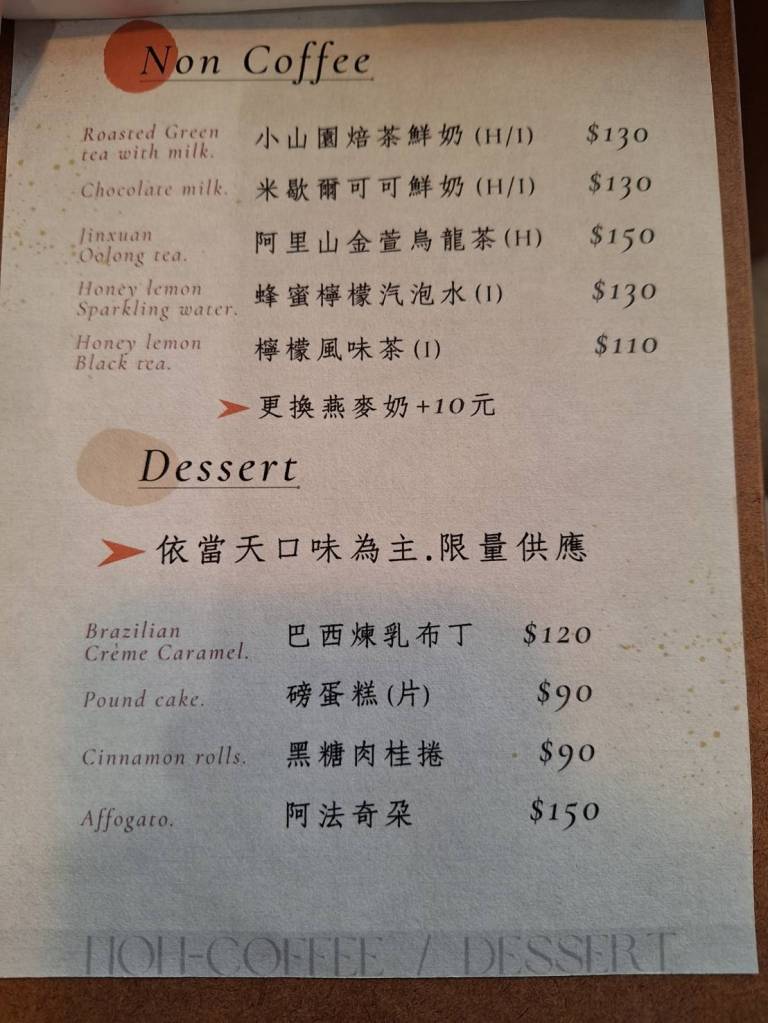 Non Coffee
Roasted Green tea with milk. 小山園焙茶鮮奶 (H/I) $130
Chocolate milk. 米歇爾可可鮮奶 (H/I) $130
Jinxuan Oolong tea. 阿里山金萱烏龍茶 (H) $150
Honey lemon Sparkling water. 蜂蜜檸檬汽泡水 (I) $130
Honey lemon Black tea. 檸檬風味茶 (I) $110
更換燕麥奶+10元
Dessert
依當天口味為主.限量供應
Brazilian Crème Caramel. 巴西煉乳布丁 $120
Pound cake. 磅蛋糕 (片) $90
Cinnamon rolls. 黑糖肉桂捲 $90
Affogato. 阿法奇朶 $150
HOH-COFFEE / DESSERT